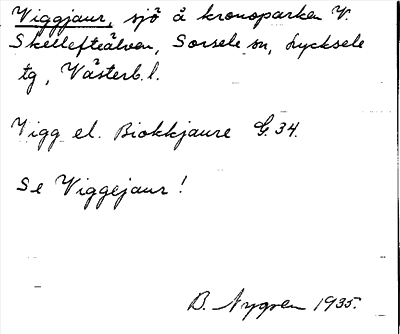 Viggjaur, sjö å kronoparken V.
Skellefteälven, Sorsele sn, Lycksele
tg, Västerb. l.
Vigg el. Biokkjaure G. 34.
Se Viggejaur!
B. Nygren 1935.